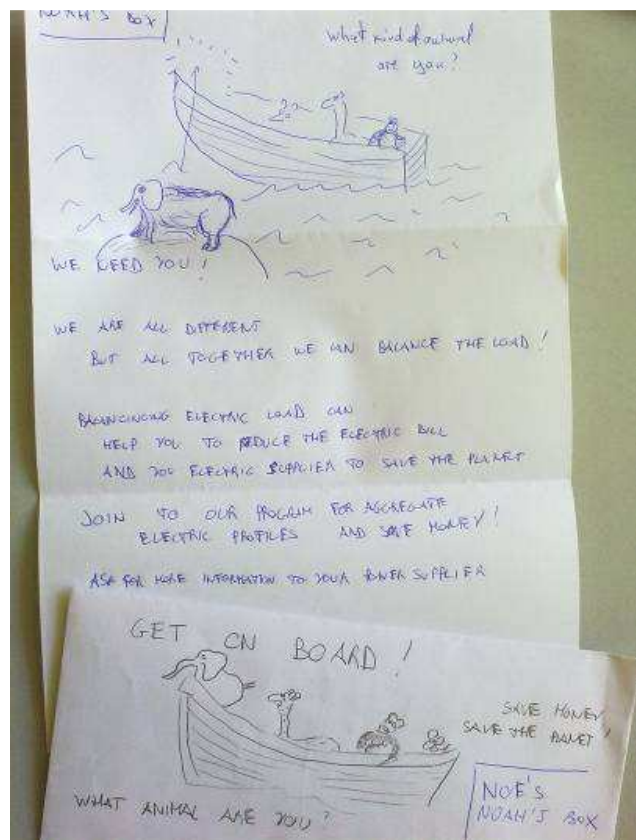 NOAH'S BOX
What kind of animal
are you?
WE NEED YOU!
WE ARE ALL DIFFERENT
BUT ALL TOGETHER WE CAN BALANCE THE LOAD!
BALANCINCING ELECTRIC LOAD CAN
HELP YOU TO REDUCE THE ELECTRIC BILL
AND YOU ELECTRIC SUPPLIER TO SAVE THE PLANET
JOIN TO OUR PROGRAM FOR AGGREGATE
ELECTRIC PROFILES AND SAVE MONEY!
ASK FOR MORE INFORMATION TO YOUR POWER SUPPLIER
GET ON BOARD!
SAVE MONEY,
SAVE THE PLANET!
WHAT ANIMAL ARE YOU?
NOE'S
NOAH'S BOX